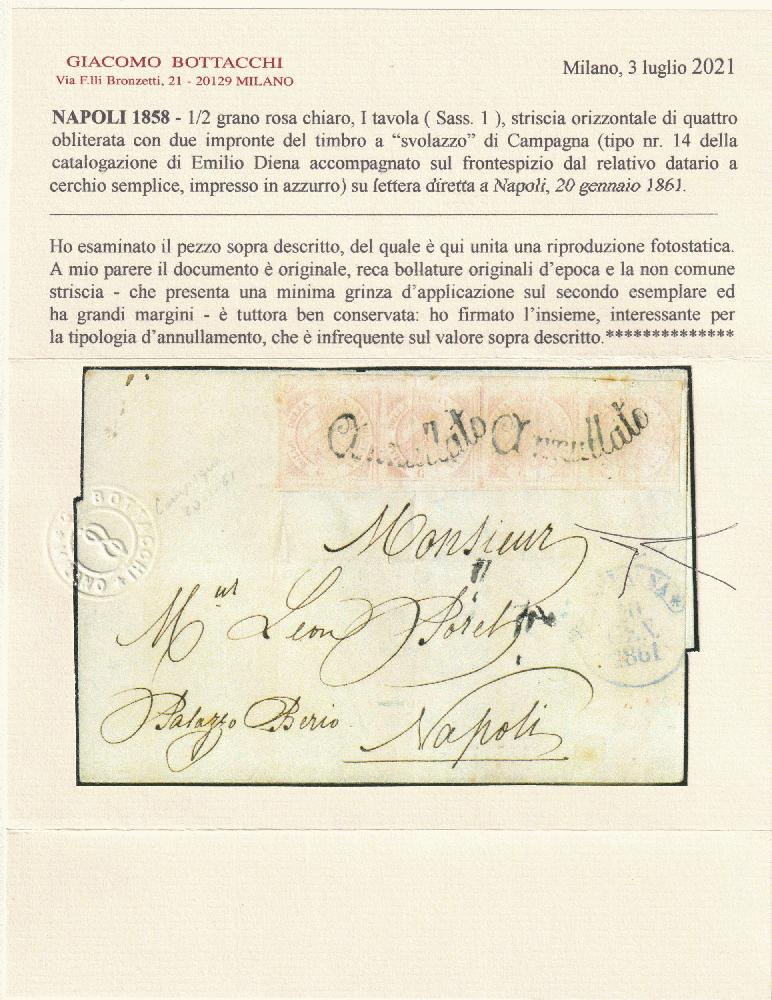 GIACOMO BOTTACCHI
Via F.lli Bronzetti, 21 - 20129 MILANO
Milano, 3 luglio 2021
NAPOLI 1858 - 1/2 grano rosa chiaro, I tavola ( Sass. 1 ), striscia orizzontale di quattro
obliterata con due impronte del timbro a “svolazzo” di Campagna (tipo nr. 14 della
catalogazione di Emilio Diena accompagnato sul frontespizio dal relativo datario a
cerchio semplice, impresso in azzurro) su lettera diretta a Napoli, 20 gennaio 1861.
Ho esaminato il pezzo sopra descritto, del quale è qui unita una riproduzione fotostatica.
A mio parere il documento è originale, reca bollature originali d’epoca e la non comune
striscia - che presenta una minima grinza d’applicazione sul secondo esemplare ed
ha grandi margini - è tuttora ben conservata: ho firmato l’insieme, interessante per
la tipologia d’annullamento, che è infrequente sul valore sopra descritto.**************
Annullato Annullato
BOTTACCHI
Monsieur
Leon
Palazzo Berio
Napoli
1861